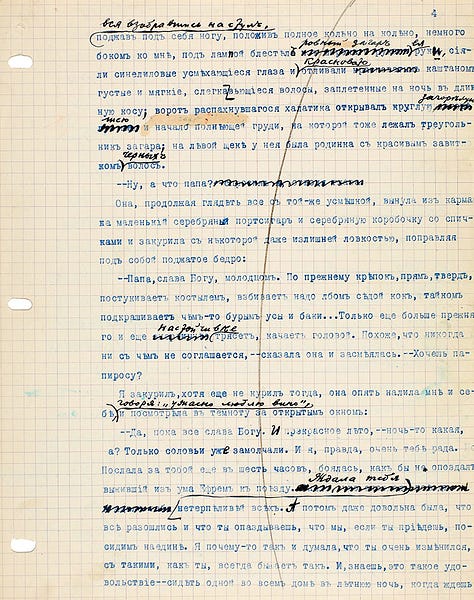 4
вся взобравшись на стулъ,
поджавъ подъ себя ногу, положивъ полное колѣно на колѣно, немного
ровный загаръ ея
бокомъ ко мнѣ, подъ лампой блестѣло руки, сія-
ли синелиловые усмѣхающіеся глаза и
красновато
отливали каштаномъ
густые и мягкіе, волосы, заплетенные на ночь въ длин
ную косу; воротъ распахнувшагося халатика открывалъ круглую загорѣлую
шею и начало полнѣющей груди, на которой тоже лежалъ треуголь-
никъ загара; на лѣвой щекѣ у нея была родинка съ красивымъ завит-
черныхъ
комъ волосъ.
--Ну, а что папа?
Она, продолжая глядѣть все съ той-же усмѣшкой, вынула изъ карма
ка маленькій серебряный портсигаръ и серебряную коробочку со спич-
ками и закурила съ нѣкоторой даже излишней ловкостью, поправляя
подъ собой поджатое бедро:
--Папа, слава Богу, молодцомъ. По прежнему крѣпокъ, прямъ, твердъ,
постукиваетъ костылемъ, взбиваетъ надо лбомъ сѣдой кокъ, тайкомъ
подкрашиваетъ чѣмъ-то бурымъ усы и баки...Только еще больше прежня
настойчивѣе
го и еще трясетъ, качаетъ головой. Похоже, что никогда
ни съ чѣмъ не соглашается,--сказала она и засмѣялась.--Хочешь па-
пиросу?
Я закурилъ, хотя еще не курилъ тогда, она опять налила мнѣ и се-
говоря: "ужасно люблю вино",
бѣ и посмотрѣла въ темноту за открытымъ окномъ:
--Да, пока все слава Богу. И прекрасное лѣто,--ночь-то какая,
а? Только соловьи уже замолчали. И я, правда, очень тебѣ рада.
Послала за тобой еще въ шесть часовъ, боялась, какъ бы не опоздалъ
Ждала тебя
выжившій изъ ума Ефремъ къ поѣзду.
нетерпѣливѣй всѣхъ. А потомъ даже довольна была, что
всѣ разошлись и что ты опаздываешь, что мы, если ты пріѣдешь, по-
сидимъ наединѣ. Я почему-то такъ и думала, что ты очень измѣнился,
съ такими, какъ ты, всегда бываетъ такъ. И, знаешь, это такое удо-
вольствіе--сидѣть одной во всемъ домѣ въ лѣтнюю ночь, когда ждешь